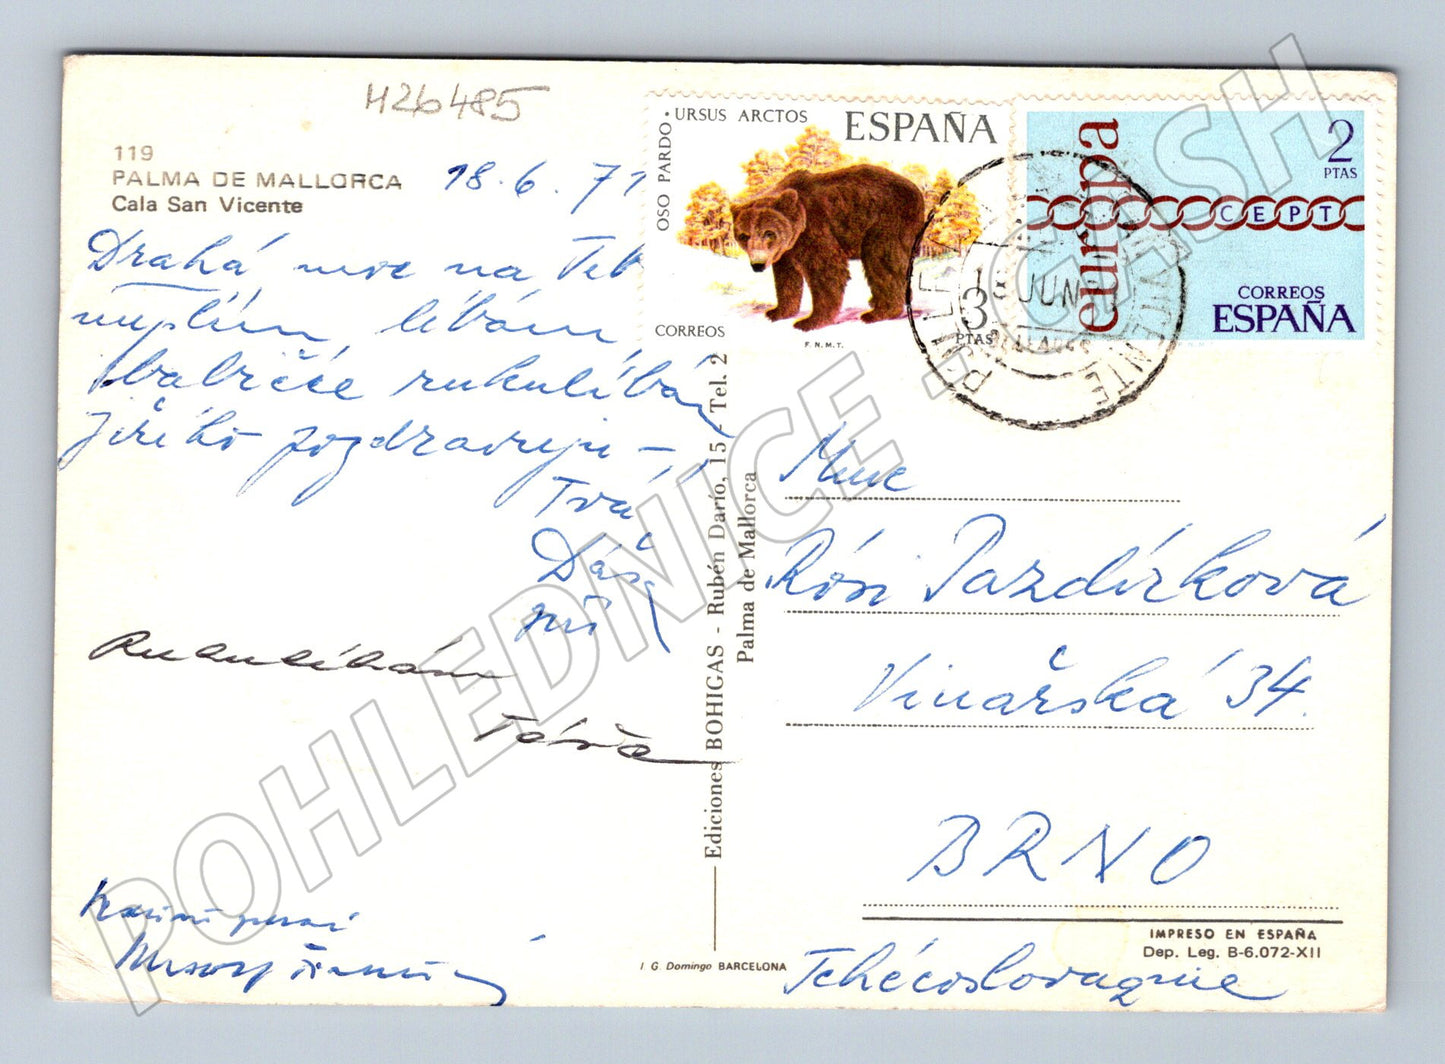 H26485
119
PALMA DE MALLORCA
Cala San Vicente
18.6.71
Drahá moc na Teb
líbám
babičce rukulíbán
Jiřího pozdravuji –
Tvá
Dáša
Rukulíbám
Táňa
URSUS ARCTOS
OSO PARDO
ESPAÑA
CORREOS
3
PTAS
F.N.M.T.
europa
2
PTAS
CEPT
CORREOS
ESPAÑA
18 JUN
Ediciones BOHIGAS - Rubén Darío, 15 - Tel. 2
Palma de Mallorca
Mme
Rósi Pazdírková
Vinařská 34.
BRNO
Tchécoslovaquie
IMPRESO EN ESPAÑA
Dep. Leg. B-6.072-XII
I G. Domingo BARCELONA
POHLEDNICE - CASH